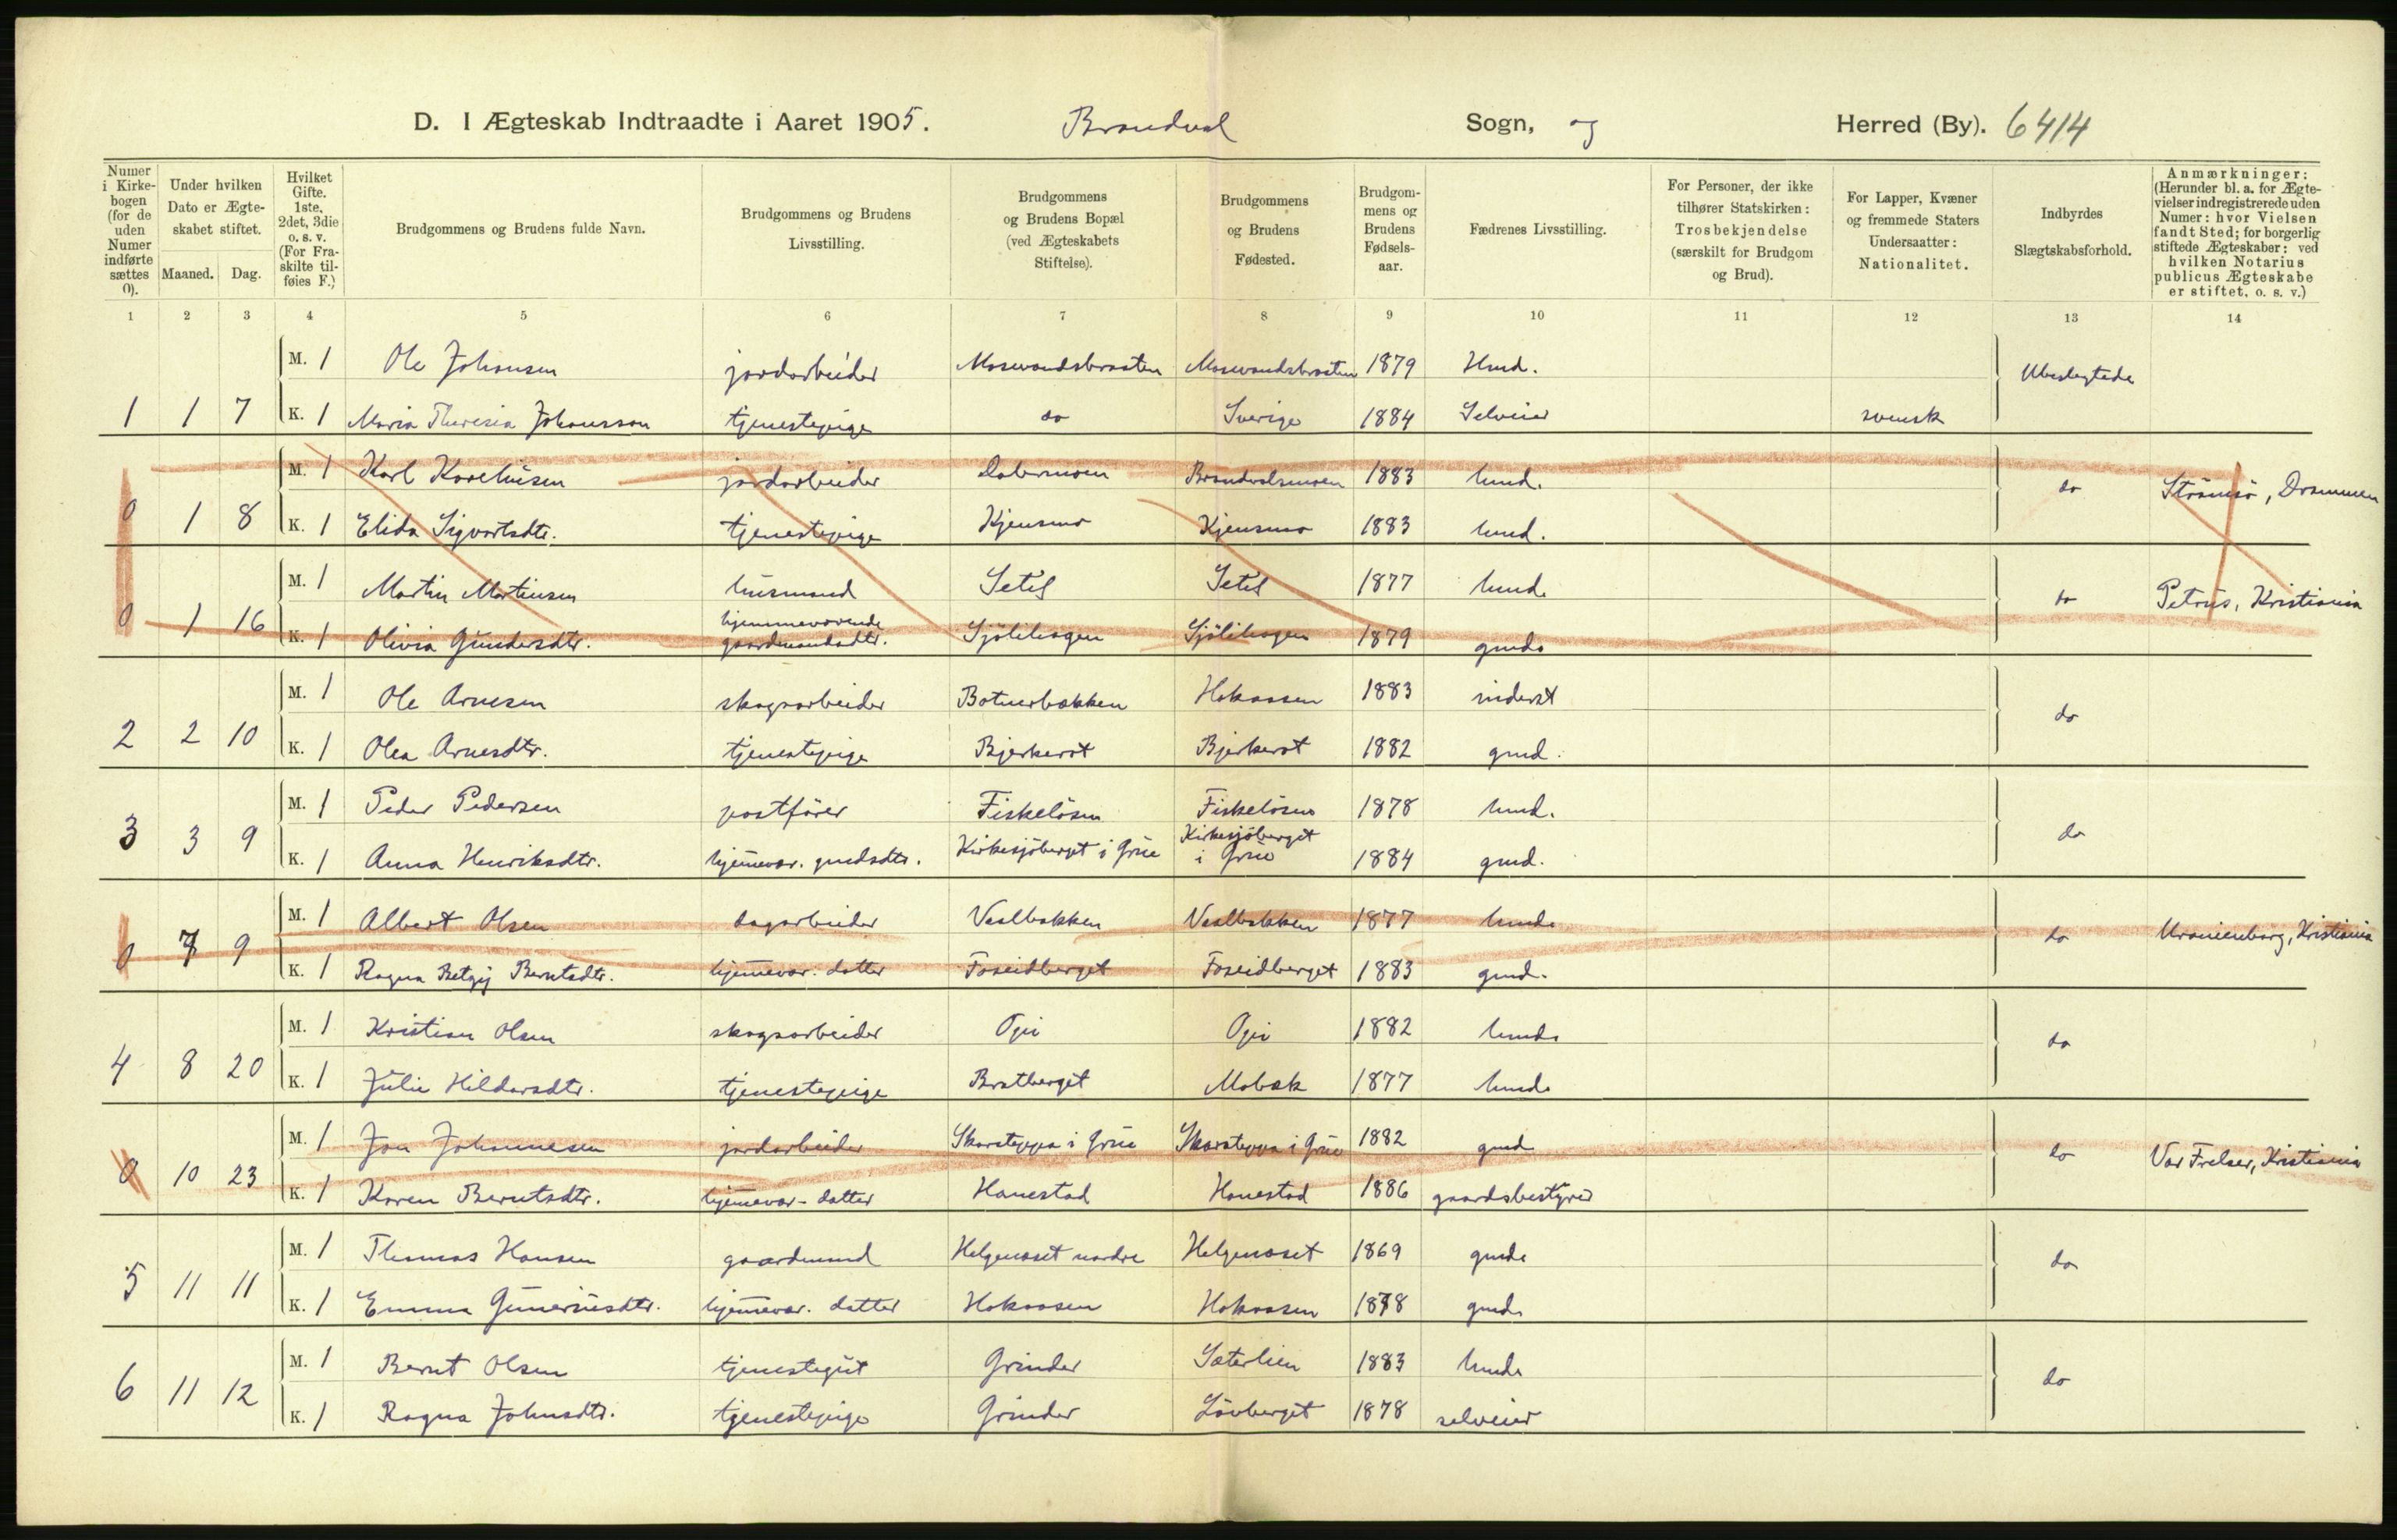 D. I Ægteskab Indtraadte i Aaret 1905. Brandval Sogn, og Herred (By). 6414
Numer i Kirkebogen (for de uden Numer indførte sættes 0).
Under hvilken Dato er Ægteskabet stiftet.
Maaned. Dag.
Hvilket Gifte. 1ste, 2det, 3die o. s. v. (For Fraskilte tilføies F.)
Brudgommens og Brudens fulde Navn.
Brudgommens og Brudens Livsstilling.
Brudgommens og Brudens Bopæl (ved Ægteskabets Stiftelse).
Brudgommens og Brudens Fødested.
Brudgommens og Brudens Fødselsaar.
Fædrenes Livsstilling.
For Personer, der ikke tilhører Statskirken: Trosbekjendelse (særskilt for Brudgom og Brud).
For Lapper, Kvæner og fremmede Staters Undersaatter: Nationalitet.
Indbyrdes Slægtskabsforhold.
Anmærkninger: (Herunder bl. a. for Ægtevielser indregistrerede uden Numer: hvor Vielsen fandt Sted; for borgerlig stiftede Ægteskaber: ved hvilken Notarius publicus Ægteskabe er stiftet, o. s. v.)
1 2 3 4 5 6 7 8 9 10 11 12 13 14
M. 1 Ole Johansen jordarbeider 1879 Hmd. Ubeslegtede
1 1 7 K. 1 Maria Theresia Johansson tjenestepige do Sverige 1884 Selveier svensk
M. 1 Karl Koreliusen jordarbeider Brandvalsmoen 1883 hmd. do Strömsö, Drammen
0 1 8 K. 1 Elida Sigvartsdtr. tjenestepige Kjensmo Kjensmo 1883 hmd.
M. 1 Martin Martinsen husmand Setel Setel 1877 hmd. do Petrus, Kristiania
0 1 16 K. 1 Olivia Gundersdtr. hjemmeværende gaardmandsdtr. Sjölihagen Sjölihagen 1879 gmd.
M. 1 Ole Arnesen skogsarbeider Botnerbakken Hokaasen 1883 inderst do
2 2 10 K. 1 Olea Arnesdtr. tjenestepige Bjerkerot Bjerkerot 1882 gmd.
M. 1 Peder Pedersen postförer Fiskelösen Fiskelösen 1878 hmd. do
3 3 9 K. 1 Anna Henriksdtr. hjemevær. gmdsdtr. Kirkesjöberget i Grue Kirkesjöberget i Grue 1884 gmd.
M. 1 Albert Olsen dagarbeider Vealbakken Vealbakken 1877 hmd. do Uranienborg, Kristiania
0 7 9 K. 1 Ragna Berntsdtr. hjemevær. datter Foseidberget Foseidberget 1883 gmd.
M. 1 Kristian Olsen skogsarbeider Opi Opi 1882 hmd. do
4 8 20 K. 1 Julie Hildarsdtr. tjenestepige Bratberget Mobæk 1877 hmd.
M. 1 Jon Johannesen jordarbeider Skarsteppa i Grue Skarsteppa i Grue 1882 gmd do Vor Frelser, Kristiania
0 10 23 K. 1 Karen Berntsdtr. hjemevær. datter Hanestad Hanestad 1886 gaardsbestyrer
M. 1 Thomas Hansen gaardmand Helgenæset nordre Helgenæset 1869 gmd. do
5 11 11 K. 1 Emma Guneriusdtr. hjemevær. datter Hokaasen Hokaasen 1878 gmd.
M. 1 Bernt Olsen tjenestegut Grinder Sæterlien 1883 hmd. do
6 11 12 K. 1 Ragna Johnsdtr. tjenestepige Grinder Lövberget 1878 selveier